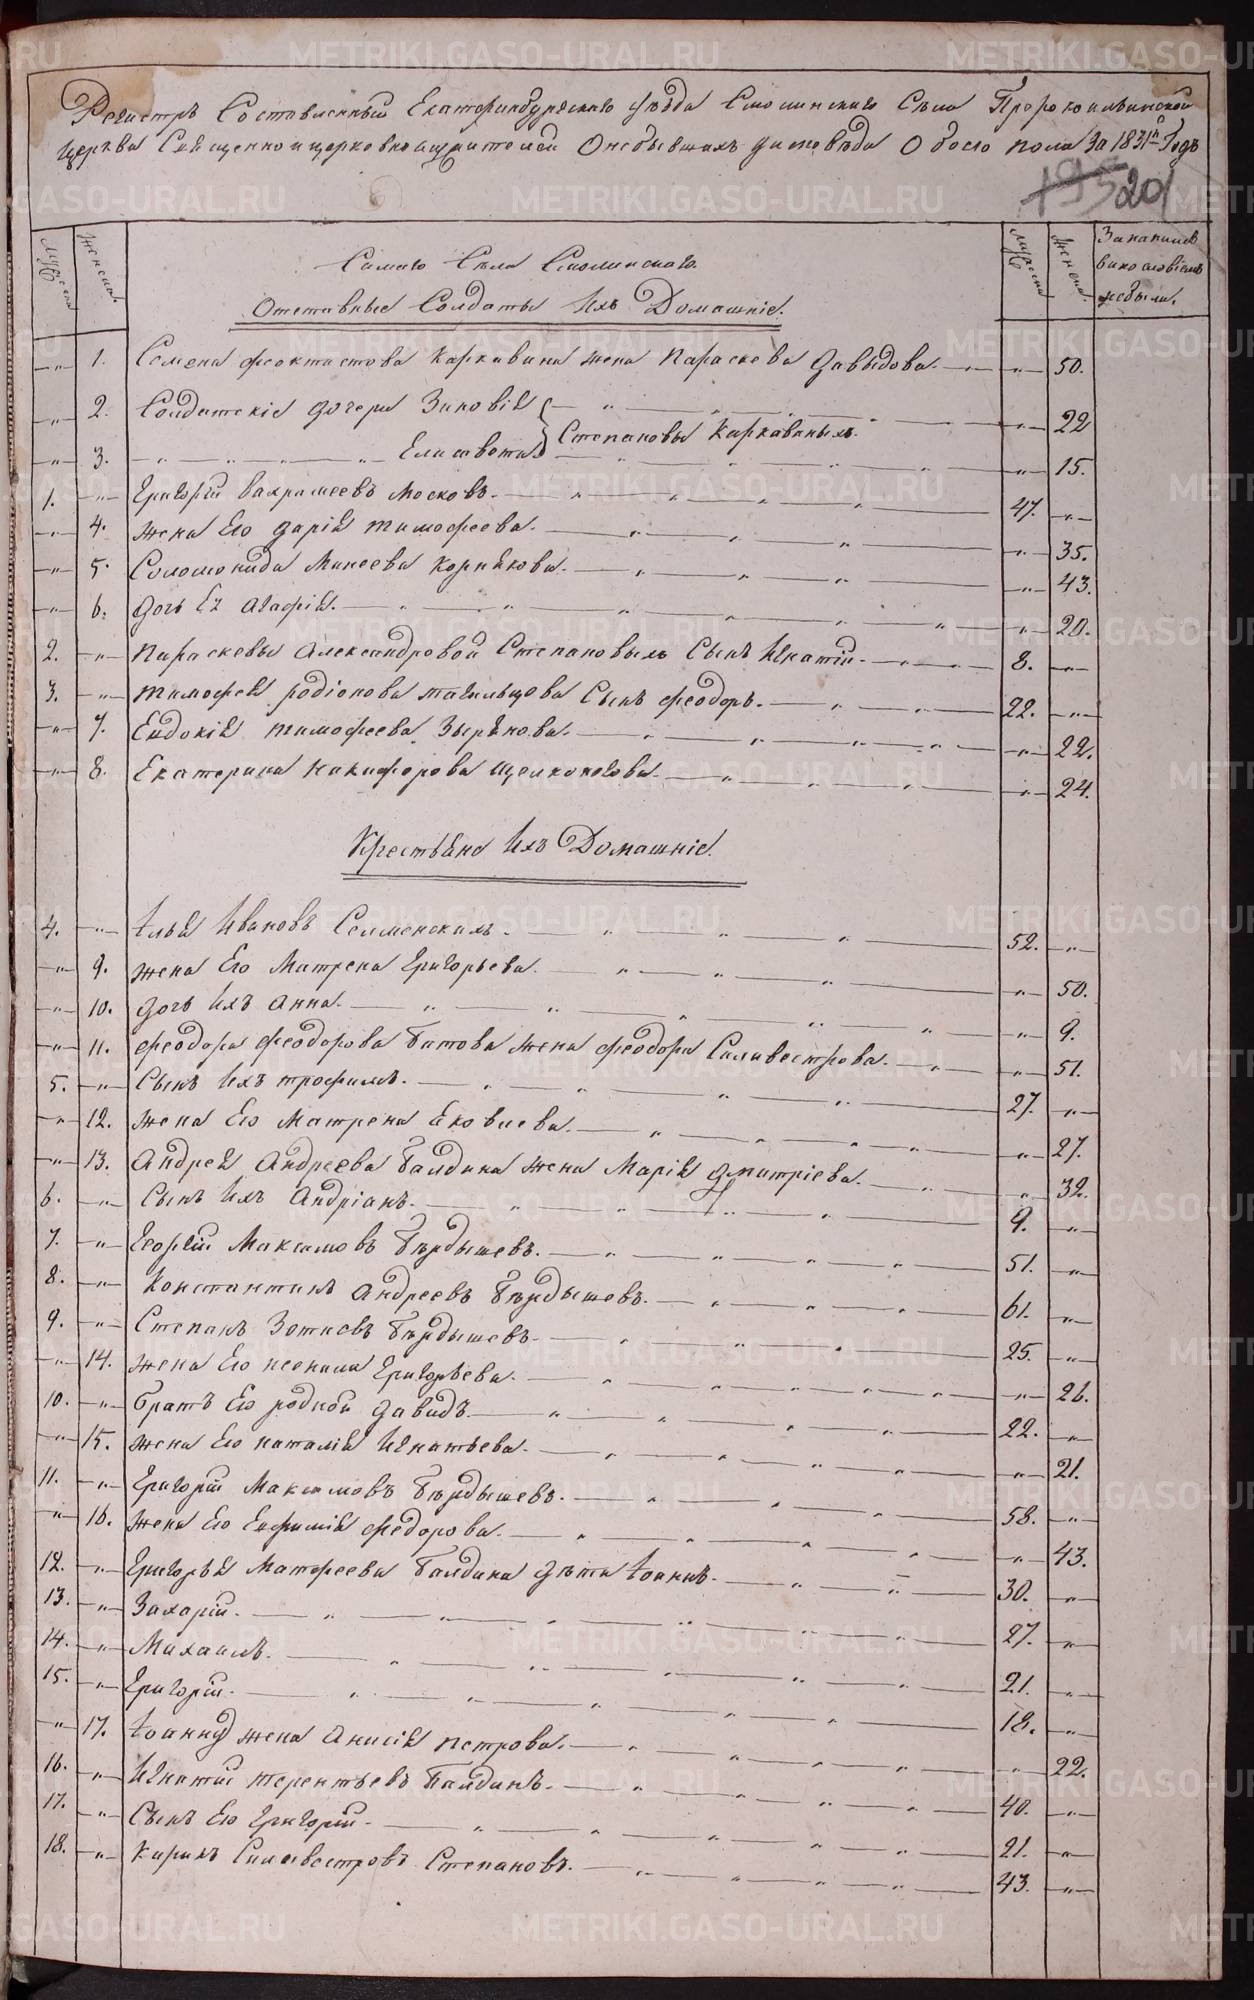 Регистръ Составленный Екатеринбургскаго уѣзда Смолинскаго Села Пророкоильинской
церкви Священно и церковнослужителями Онебывшихъ уисповѣди Обоего пола За 1831й Годъ
195 201
мужеска
женска
Самаго Села Смолинскаго.
Отставные Солдаты Ихъ Домашніе.
мужеска
женска
Закакими
виновіемъ
небыли.
„ 1. Семена феоктистова Каркавина жена Параскева давыдова. „ 50.
„ 2. Солдатскіе дочери Зиновія „ 22
Степановы Каркавиныхъ.
„ 3. Елисавета „ 15.
1. „ Григорій Вахрамеевъ Москов. 47. „
„ 4. жена Его дарія тимофеева. „ 35.
„ 5. Соломонида Минеева Корнякова. „ 43.
„ 6. дочь Ея Агафія. „ 20.
2. „ Параскевы Александровой Степановыхъ Сынъ Игнатій. 8. „
3. „ тимофея родіонова тагильцова Сынъ феодоръ. 22. „
„ 7. Евдокія тимофеева Зырянова. „ 22.
„ 8. Екатерина Никифорова Щелконогова. „ 24.
Крестьяне Ихъ Домашніе.
4. „ Илья Ивановъ Селменскихъ. 52. „
„ 9. жена Его Матрена Григорьева. „ 50.
„ 10. дочь Ихъ Анна. „ 9.
„ 11. феодора феодорова Битова жена феодора Силивестрова. „ 51.
5. „ Сынъ Ихъ трофимъ. 27. „
„ 12. жена Его Матрена Яковлева. „ 27.
„ 13. Андрея Андреева Балдина жена Марія дмитріева. „ 32.
6. „ Сынъ Ихъ Андріанъ. 9. „
7. „ Георгій Максимовъ Бердышевъ. 51. „
8. „ Константинъ Андреевъ Бердышевъ. 61. „
9. „ Степанъ Зотиевъ Бердышевъ. 25. „
„ 14. жена Его неонила Григорьева. „ 26.
10. „ братъ Его родной давидъ. 22. „
„ 15. жена Его наталія Игнатьева. „ 21.
11. „ Григорій Максимовъ Бердышевъ. 58. „
„ 16. жена Его Евфимія федорова. „ 43.
12. „ Григорья Матфеева Балдина дѣти Іоаннъ. 30. „
13. „ Захарій. 27. „
14. „ Михаилъ. 21. „
15. „ Григорій. 18. „
„ 17. Іоанна жена Анисія петрова. „ 22.
16. „ Игнатій терентьевъ Балдинъ. 40. „
17. „ Сынъ Его Григорій. 21. „
18. „ Кирилъ Силивестровъ Степановъ. 43. „
METRIKI.GASO-URAL.RU